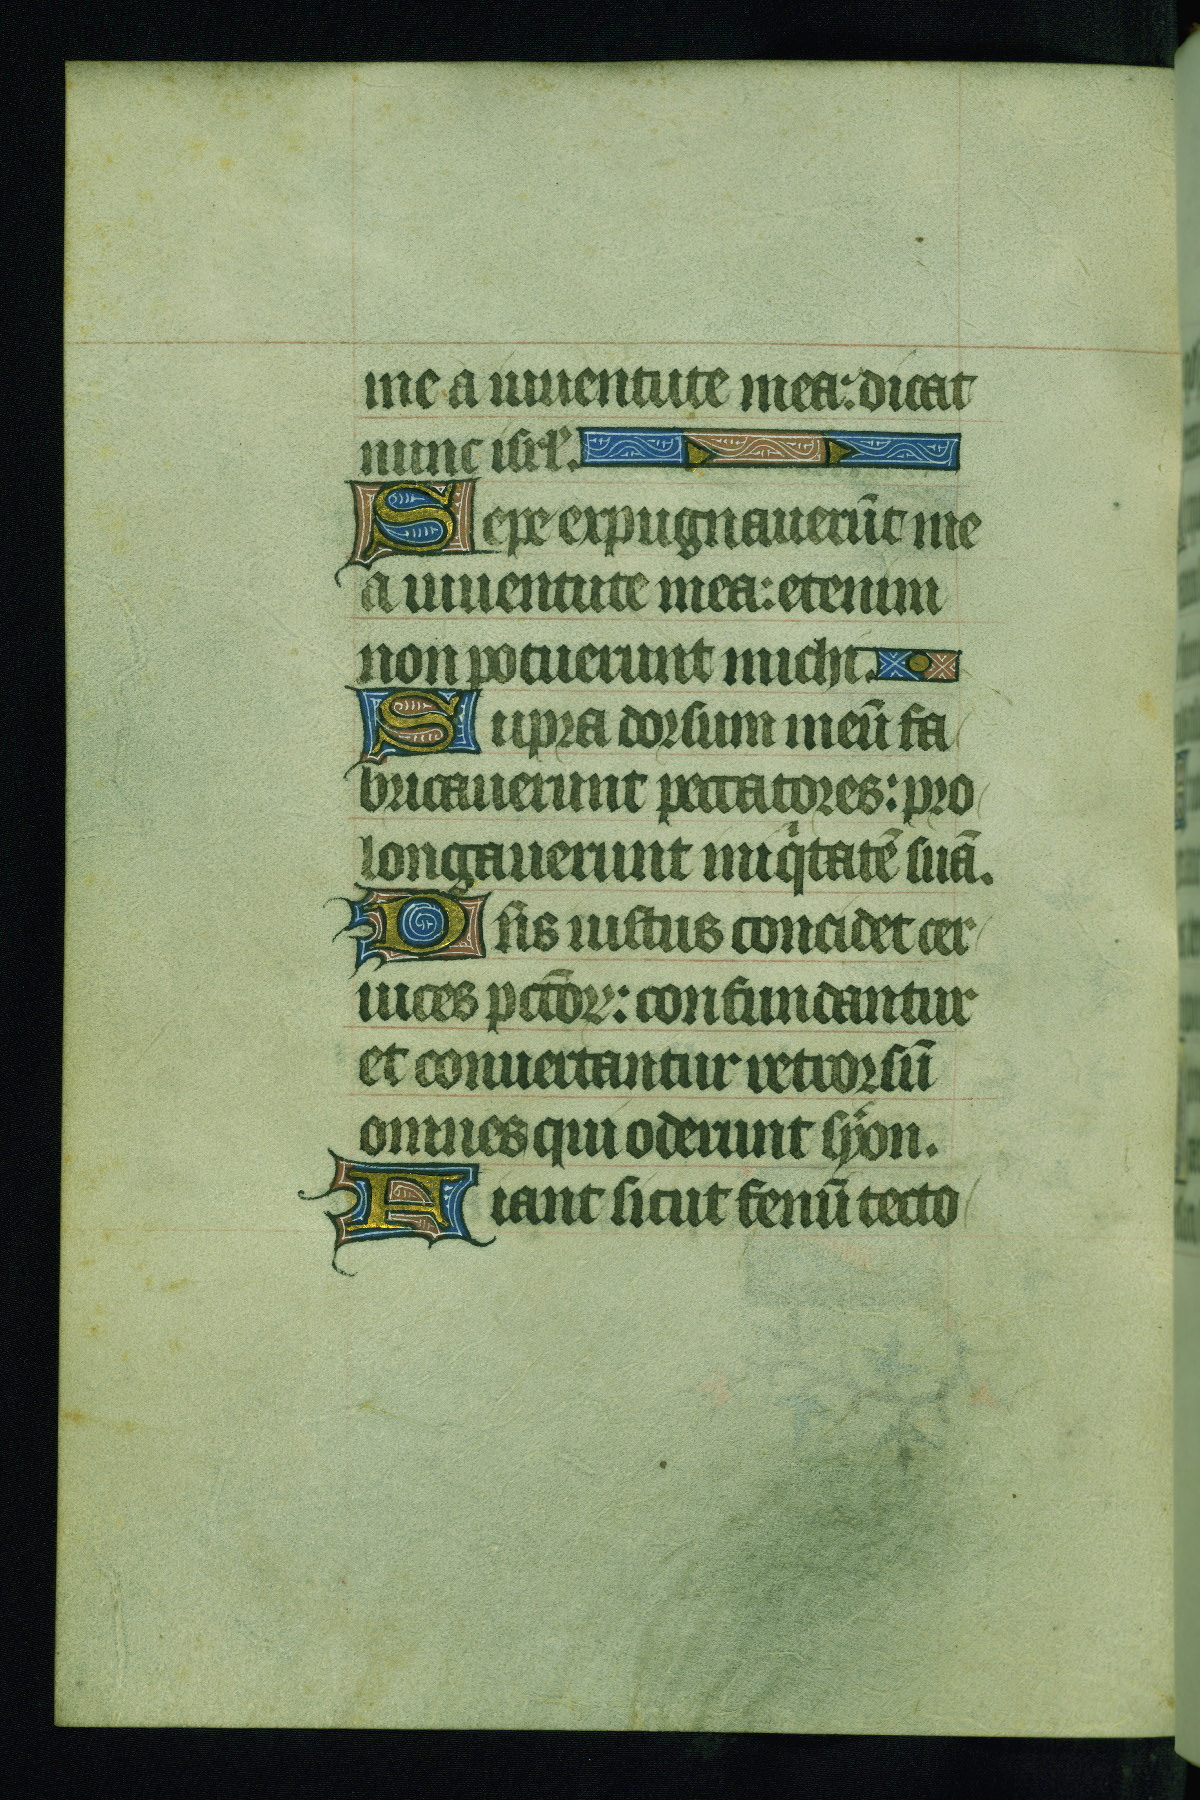 me a iuuentute mea: dicat
nunc isrl̄.
Sepe expugnauerūt me
a iuuentute mea: etenim
non potuerunt michi.
Supra dorsum meū fa
bricauerunt peccatores: pro
longauerunt iniqͥtatē suā.
Dn̄s iustus concidet cer
uices pctōꝝ: confundantur
et conuertantur retrorsū
omnes qui oderunt syon.
Fiant sicut fenū tecto